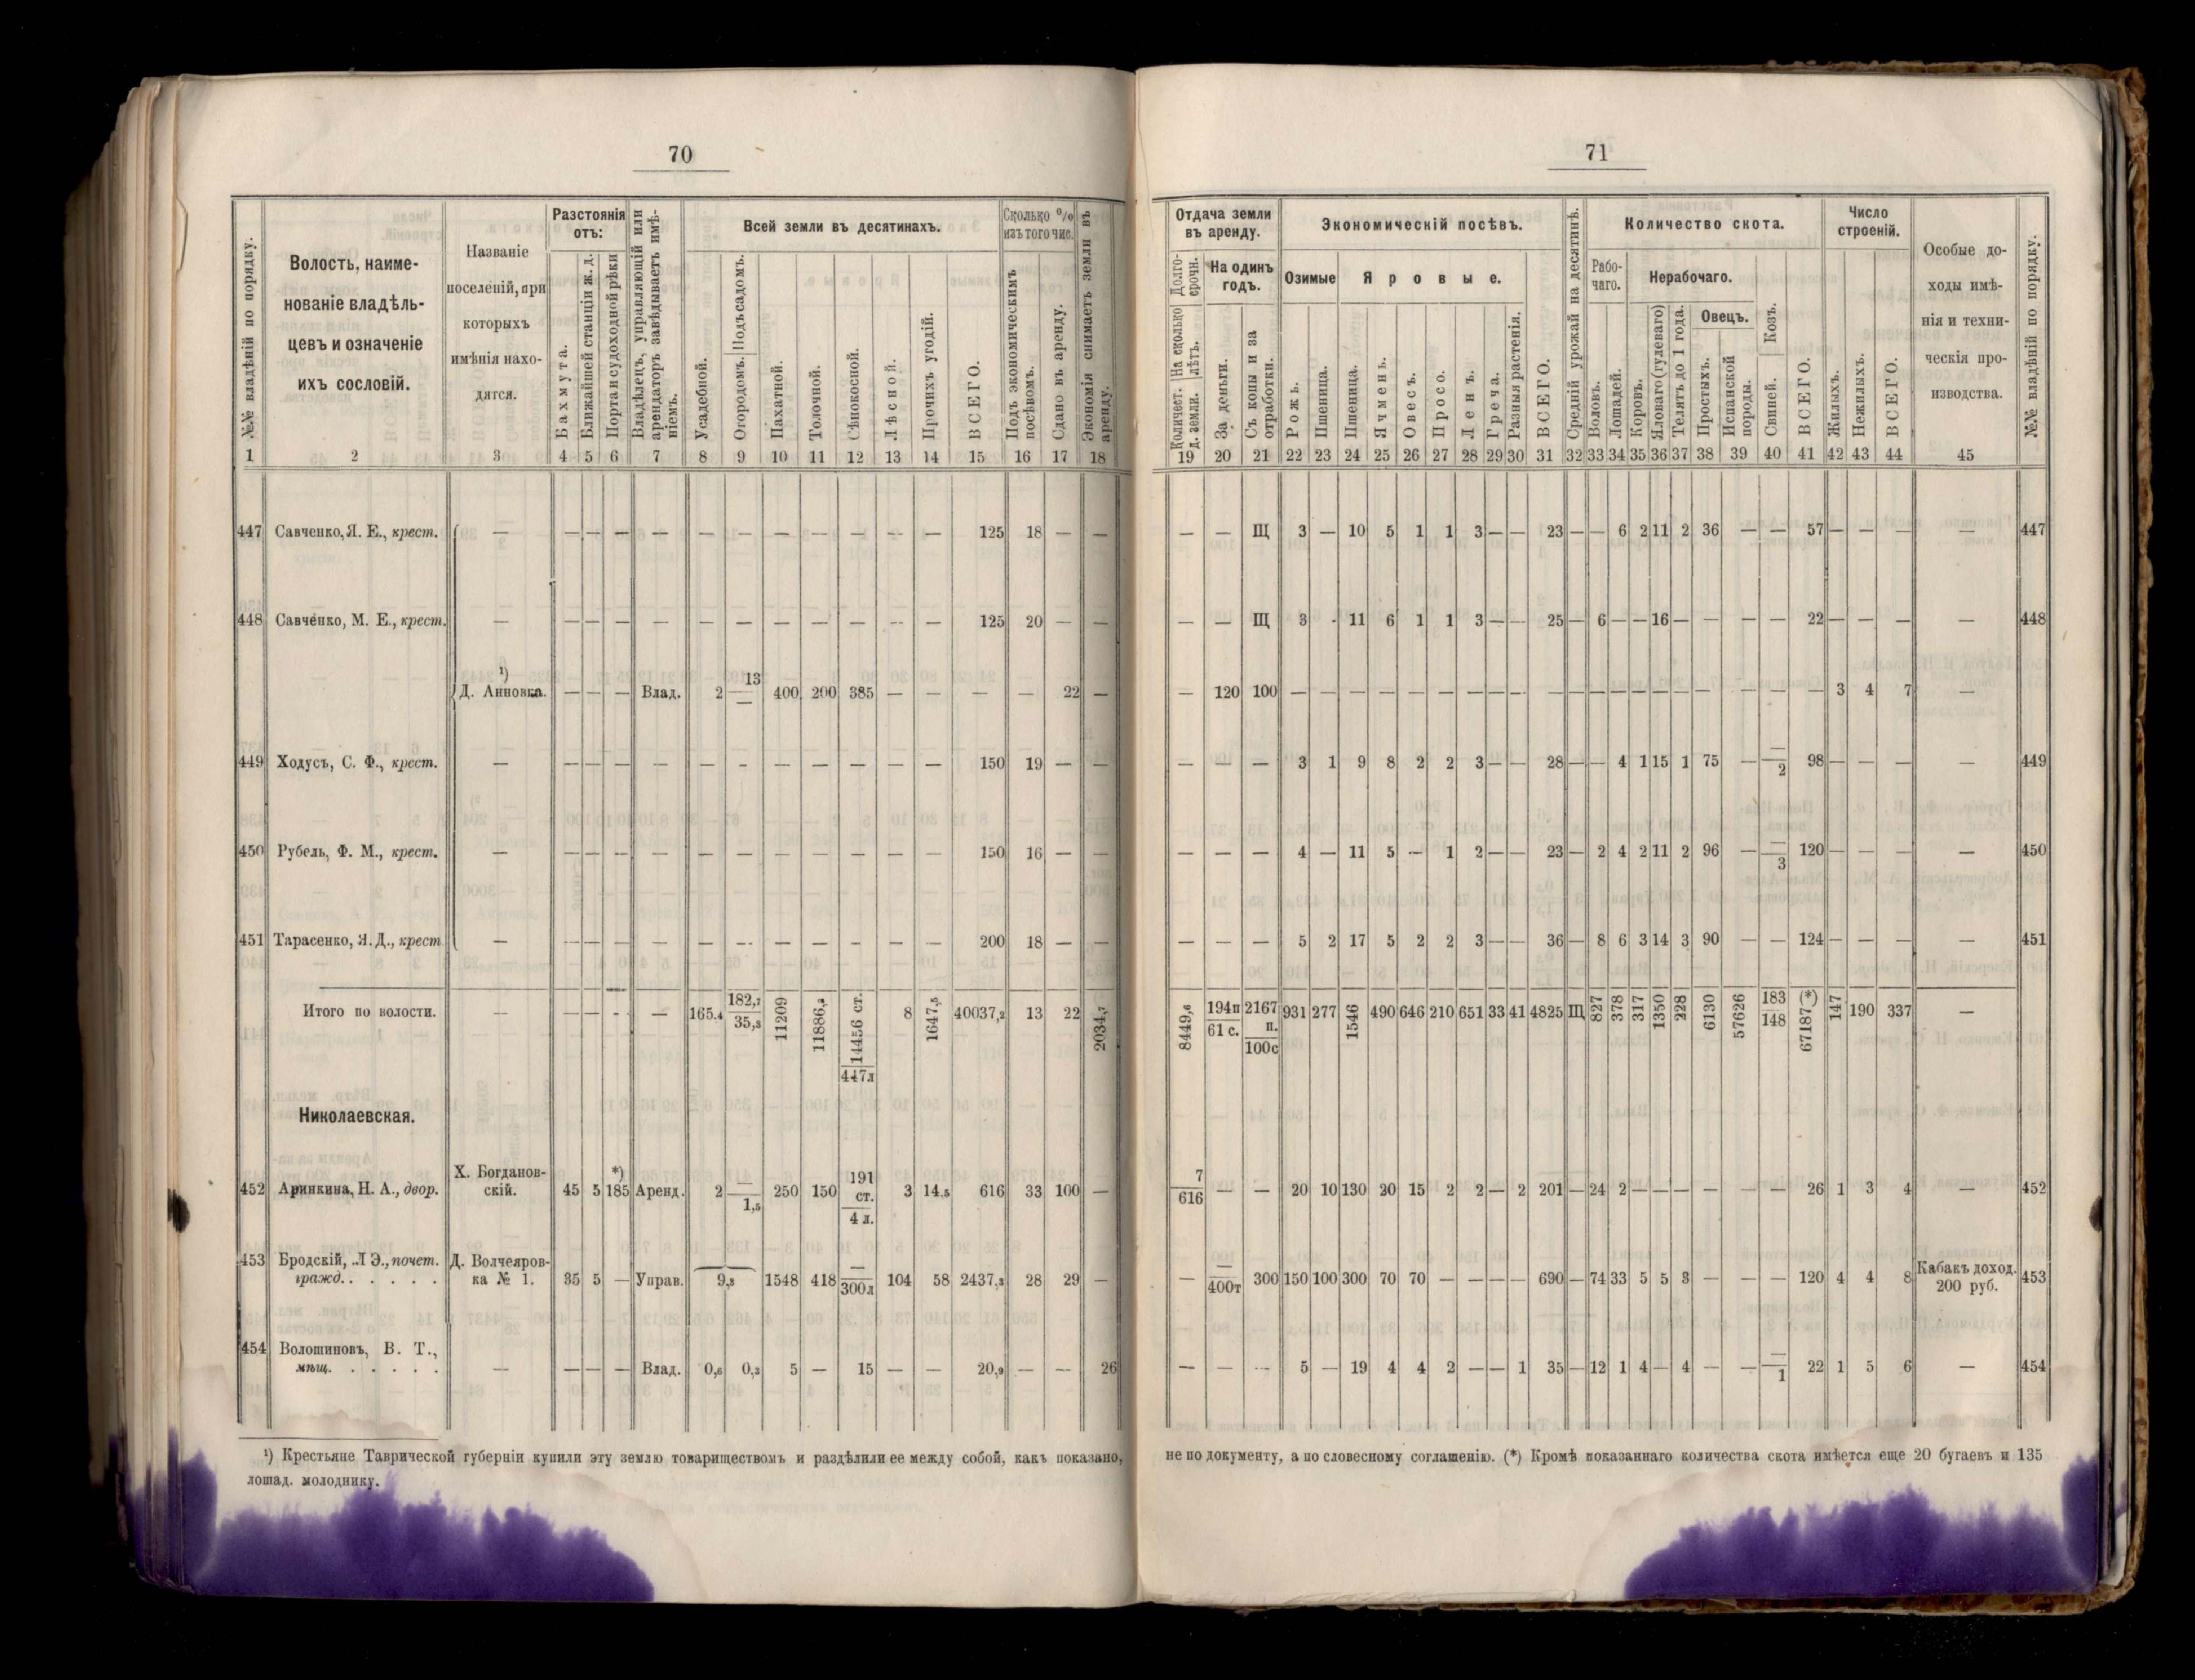 70
№№ владѣній по порядку.
Волость, наиме-
нованіе владѣль-
цевъ и означеніе
ихъ сословій.
Названіе
поселеній, при
которыхъ
имѣнія нахо-
дятся.
Разстоянія
отъ:
Бахмута.
Ближайшей станціи ж. д.
Порта и судоходной рѣки
Владѣлецъ, управляющій или
арендаторъ завѣдываетъ имѣ-
ніемъ.
Всей земли въ десятинахъ.
Усадебной.
Огородомъ. Подъ садомъ.
Пахатной.
Толочной.
Сѣнокосной.
Лѣсной.
Прочихъ угодій.
ВСЕГО.
Сколько %
изъ того чис.
Подъ экономическимъ
посѣвомъ.
Сдано въ аренду.
Экономія снимаетъ земли въ
аренду.
1 2 3 4 5 6 7 8 9 10 11 12 13 14 15 16 17 18
447 Савченко, Я. Е., крест. — — — — — — — — — — — — 125 18 — —
448 Савченко, М. Е., крест. — — — — — — — — — — — — 125 20 — —
¹) 13
Д. Анновка. — — — Влад. 2 — 400 200 385 — — — — 22 —
449 Ходусъ, С. Ф., крест. — — — — — — — — — — — — 150 19 — —
450 Рубель, Ф. М., крест. — — — — — — — — — — — — 150 16 — —
451 Тарасенко, Я. Д., крест — — — — — — — — — — — — 200 18 — —
Итого по волости. — — — — — 165,4 182,7 35,3 11209 11886,3 14456 ст. 447л 8 1647,5 40037,2 13 22 2034,7
Николаевская.
Х. Богданов- *) — 191
452 Аринкина, Н. А., двор. скій. 45 5 185 Аренд. 2 1,5 250 150 ст. 3 14,5 616 33 100 —
4 л.
453 Бродскій, Л Э., почет. Д. Волчеяров-
гражд. . . . . . ка № 1. 35 5 — Управ. 9,3 1548 418 — 300л 104 58 2437,3 28 29 —
454 Волошиновъ, В. Т.,
мѣщ. . . . . . — — — — Влад. 0,6 0,3 5 — 15 — — 20,9 — — 26
¹) Крестьяне Таврической губерніи купили эту землю товариществомъ и раздѣлили ее между собой, какъ показано,
лошад. молоднику.
71
Отдача земли
въ аренду.
Количест. д. земли. На сколько лѣтъ. Долго-
срочн.
На одинъ
годъ.
За деньги.
Съ копы и за
отработки.
Экономическій посѣвъ.
Озимые
Рожь.
Пшеница.
Яровые.
Пшеница.
Ячмень.
Овесъ.
Просо.
Ленъ.
Греча.
Разныя растенія.
ВСЕГО.
Средній урожай на десятинѣ.
Количество скота.
Рабо-
чаго.
Воловъ.
Лошадей.
Нерабочаго.
Коровъ.
Яловаго (гулеваго)
Телятъ до 1 года.
Овецъ.
Простыхъ.
Испанской
породы.
Свиней. Козъ.
ВСЕГО.
Число
строеній.
Жилыхъ.
Нежилыхъ.
ВСЕГО.
Особые до-
ходы имѣ-
нія и техни-
ческія про-
изводства.
№№ владѣній по порядку.
19 20 21 22 23 24 25 26 27 28 29 30 31 32 33 34 35 36 37 38 39 40 41 42 43 44 45
— — Щ 3 — 10 5 1 1 3 — — 23 — — 6 2 11 2 36 — — 57 — — — — 447
— — Щ 3 - 11 6 1 1 3 — — 25 — 6 — — 16 — — — — 22 — — — — 448
— 120 100 — — — — — — — — — — — — — — — — — — — — 3 4 7 —
— — — 3 1 9 8 2 2 3 — — 28 — — 4 1 15 1 75 — — 2 98 — — — — 449
— — — 4 — 11 5 — 1 2 — — 23 — 2 4 2 11 2 96 — — 3 120 — — — — 450
— — — 5 2 17 5 2 2 3 — — 36 — 8 6 3 14 3 90 — — 124 — — — — 451
8449,6 194п 61 с. 2167 п. 100с 931 277 1546 490 646 210 651 33 41 4825 Щ 827 378 317 1350 228 6130 57626 183 148 67187(*) 147 190 337 —
7
616 — — 20 10 130 20 15 2 2 — 2 201 — 24 2 — — — — — — 26 1 3 4 — 452
— — 400т 300 150 100 300 70 70 — — — — 690 — 74 33 5 5 3 — — — 120 4 4 8 Кабакъ доход. 453
200 руб.
— — — 5 — 19 4 4 2 — — 1 35 — 12 1 4 — 4 — — — 1 22 1 5 6 — 454
не по документу, а по словесному соглашенію. (*) Кромѣ показаннаго количества скота имѣется еще 20 бугаевъ и 135